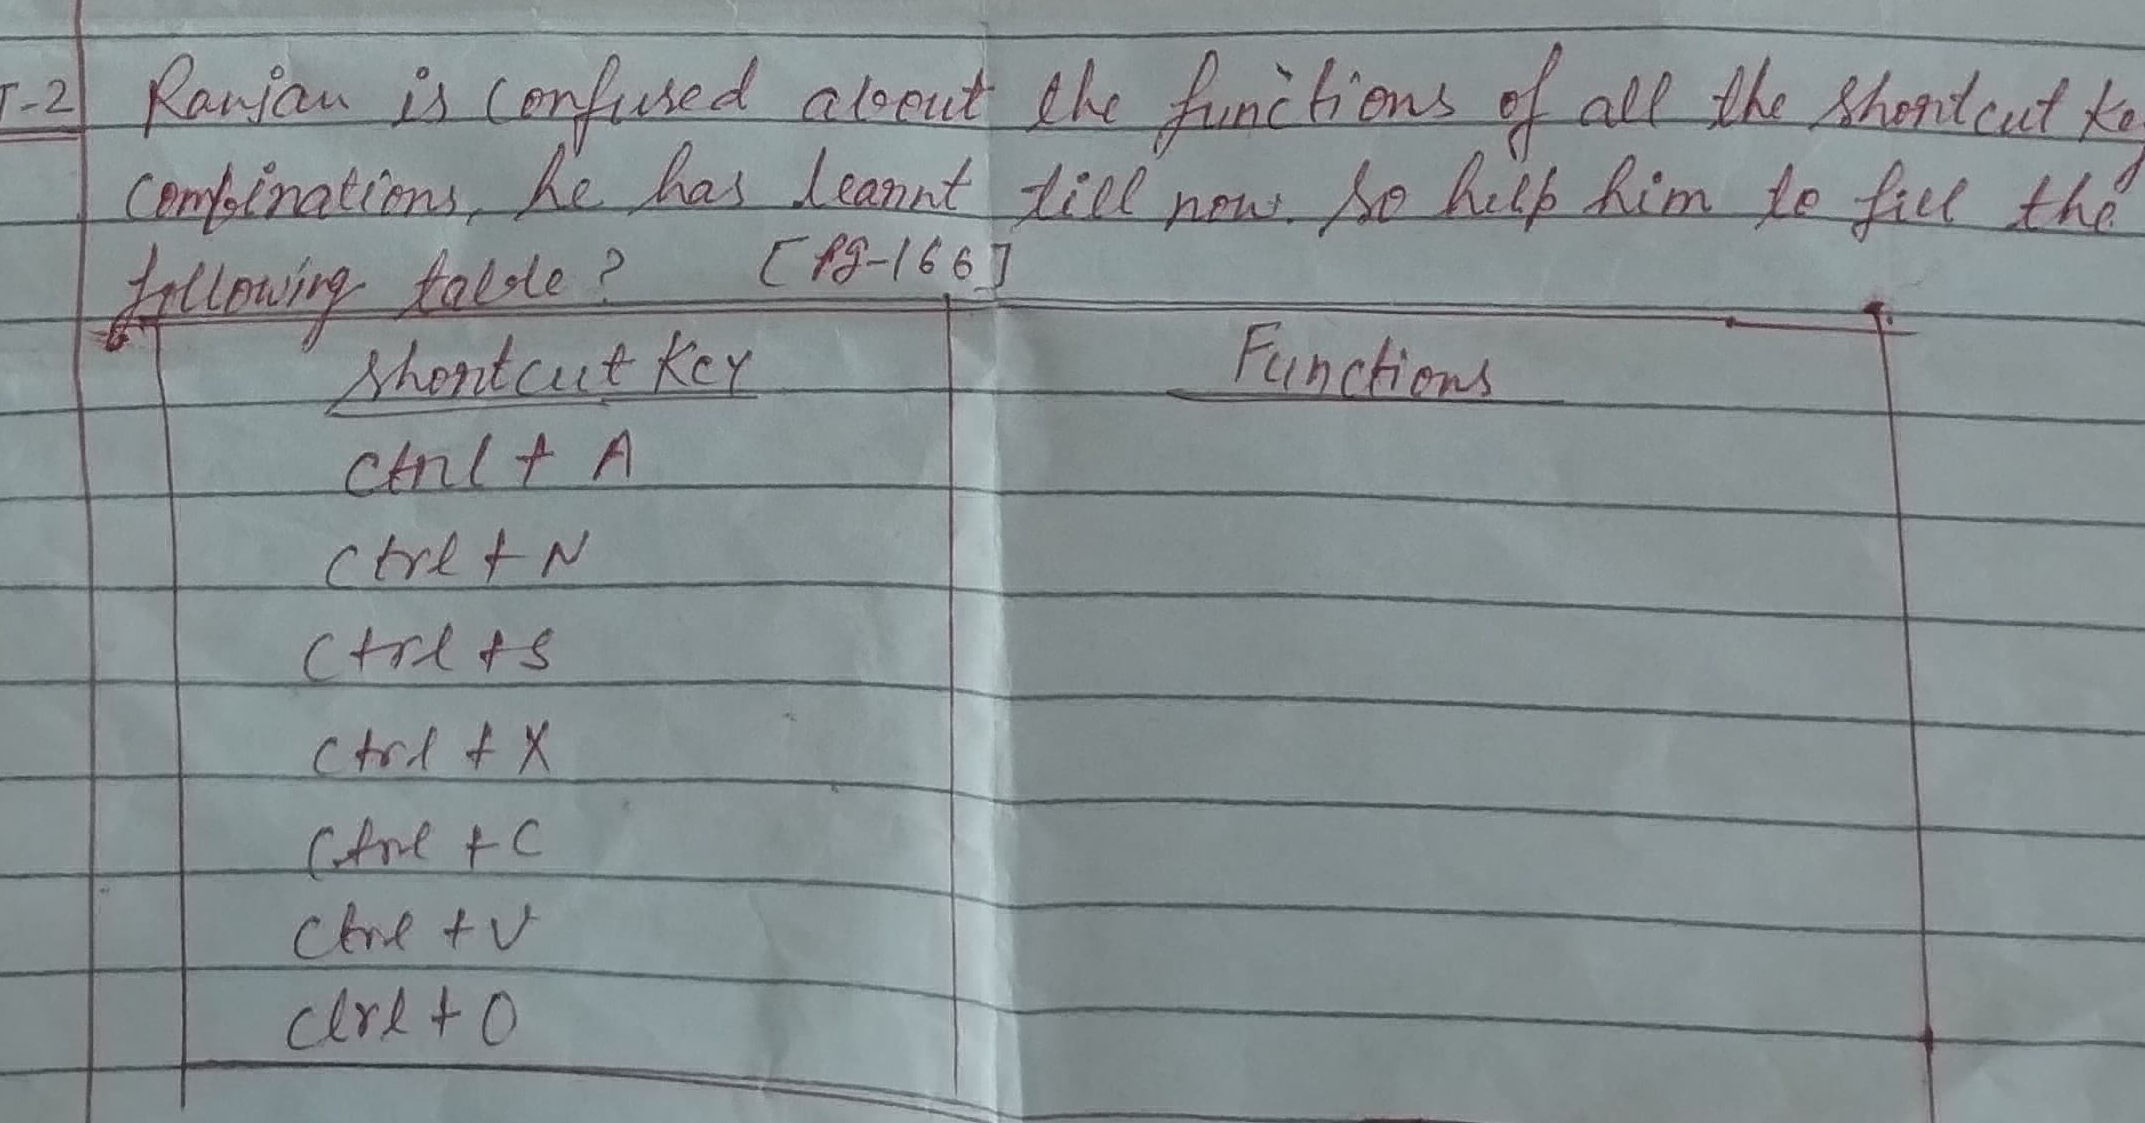 T-2 Ranjan is confused about the functions of all the shortcut key
combinations, he has learnt till now. So help him to fill the
following table? [Pg-166]
Shortcut Key Functions
Ctrl + A
Ctrl + N
Ctrl + S
Ctrl + X
Ctrl + C
Ctrl + V
Ctrl + O